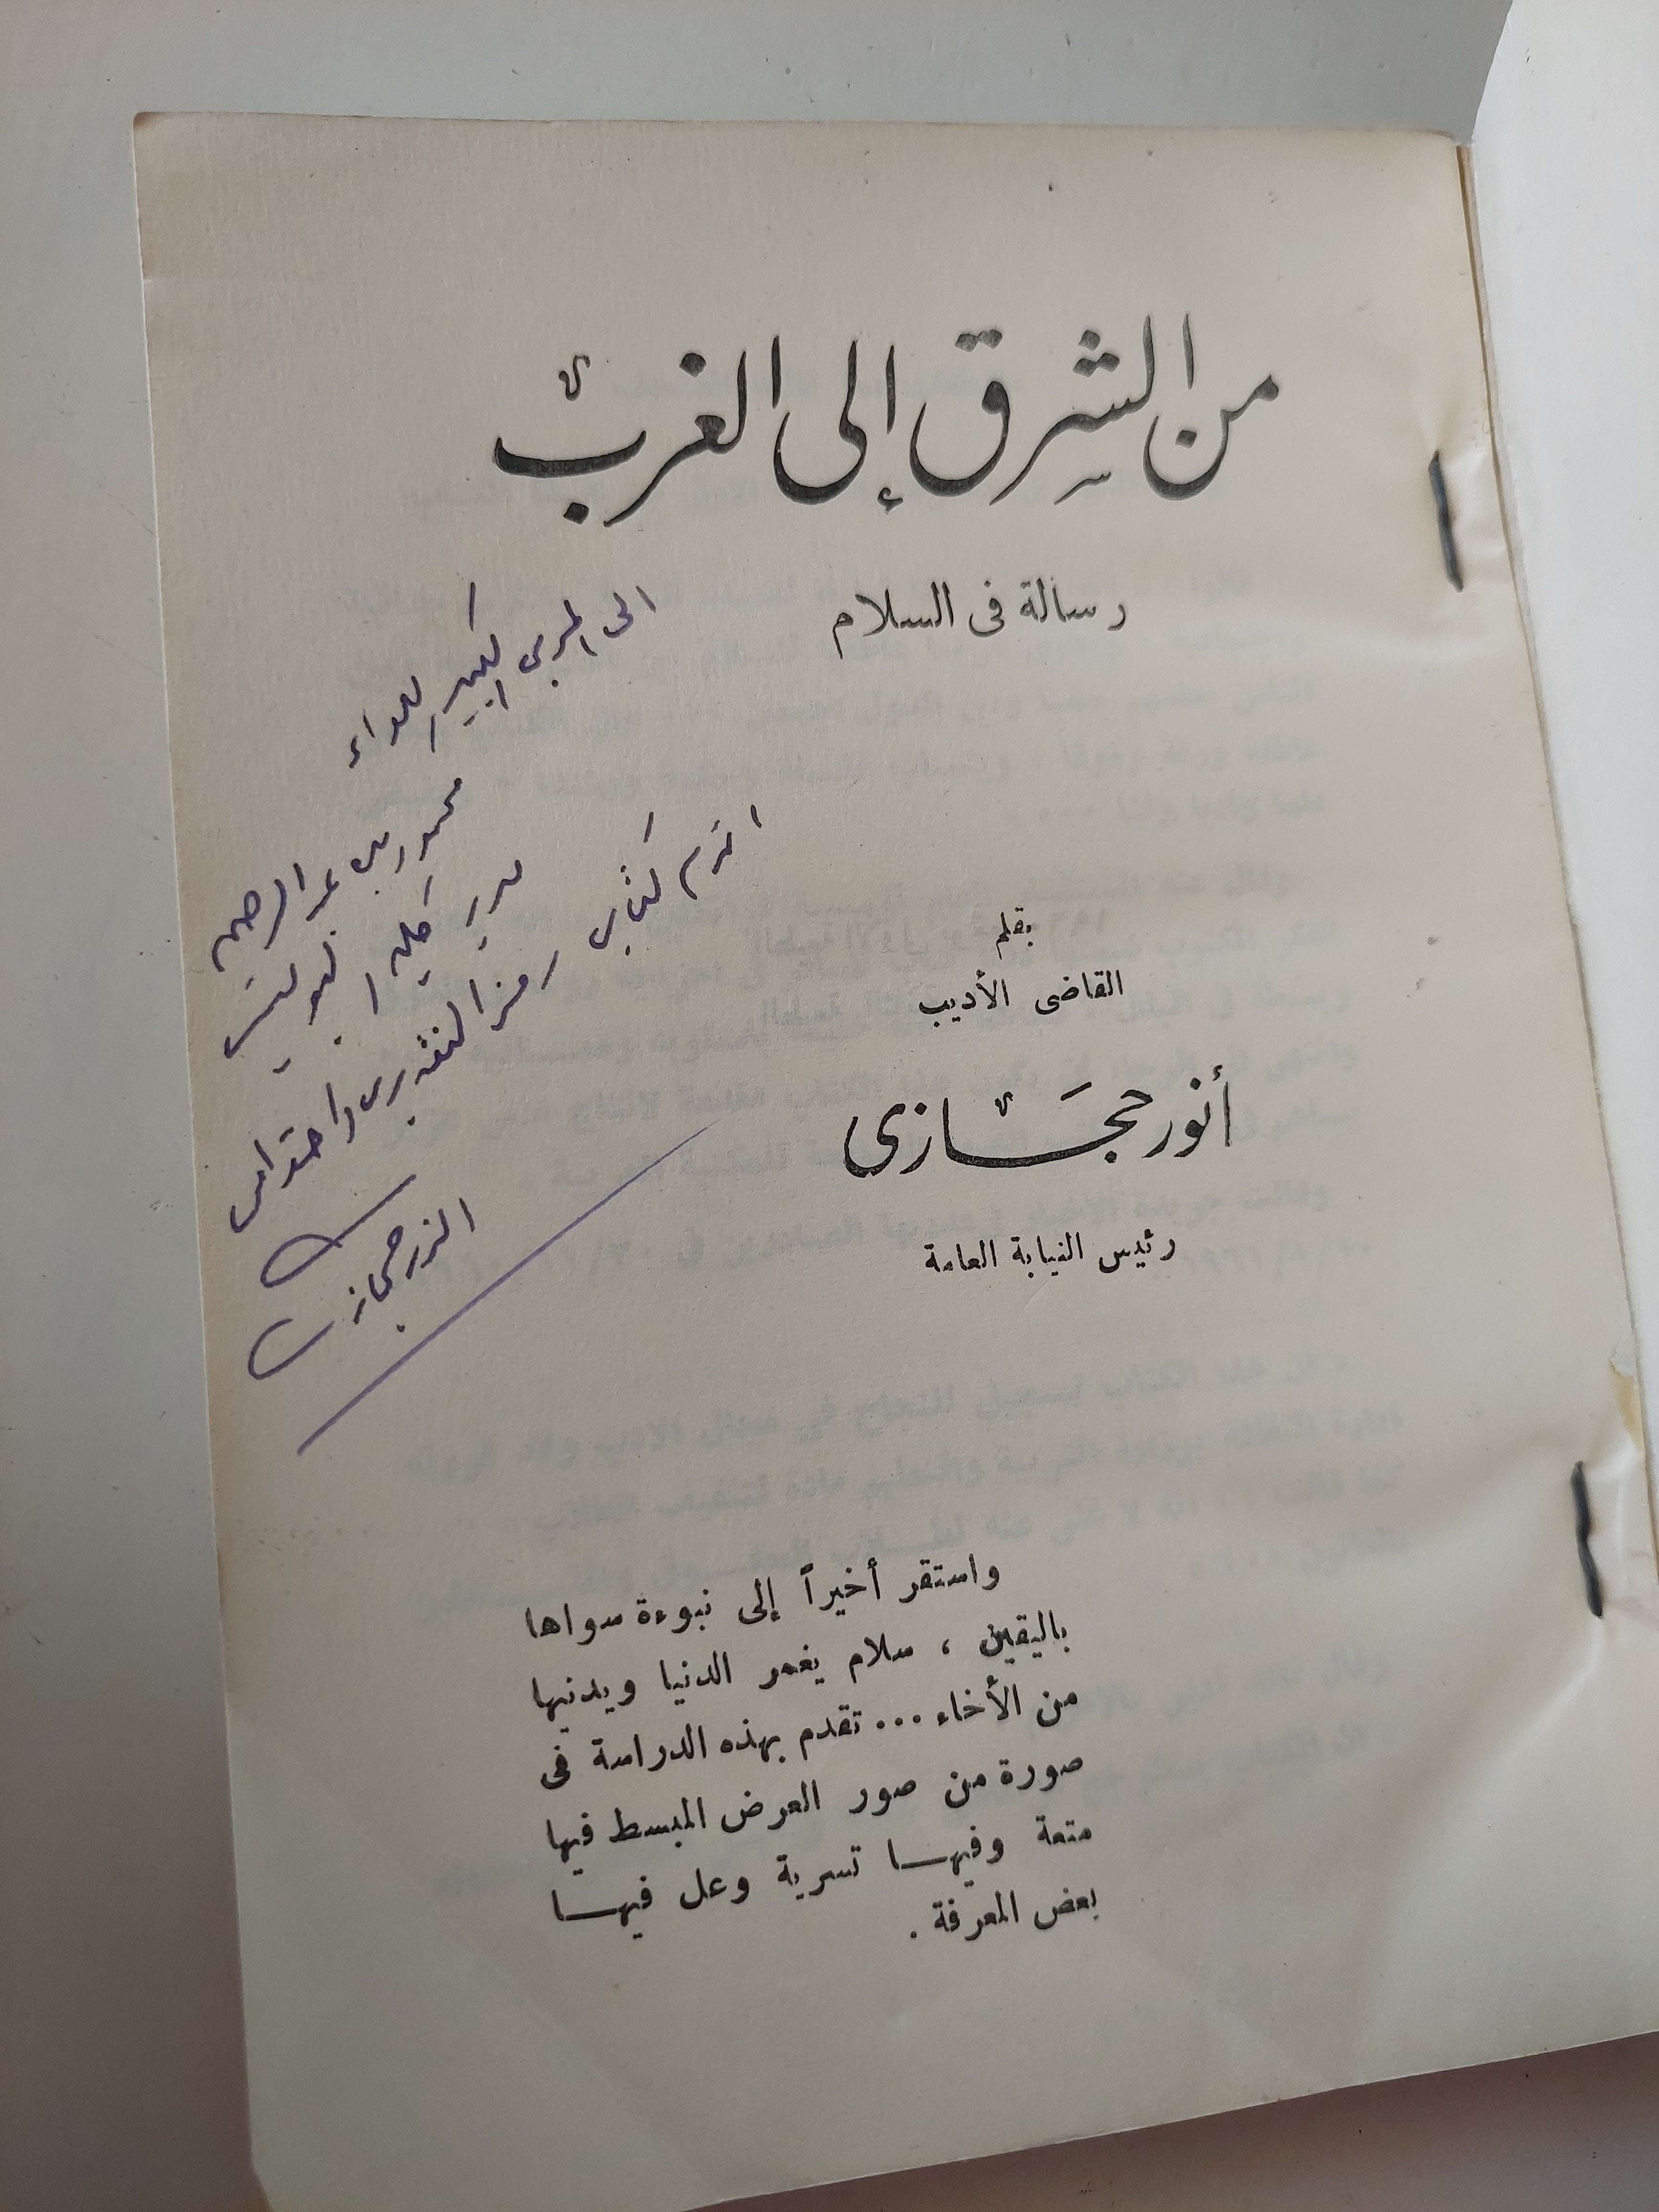 من الشرق إلى الغرب
رسالة فى السلام
الى المربى الكبير اللواء
محمود عبد الرحمن
مدير كلية البوليس
اقدم كتابى رمز التقدير واحترام
انور حجازى
بقلم
القاضى الأديب
أنور حجازى
رئيس النيابة العامة
واستقر أخيراً إلى نبوءة سواها
باليقين ، سلام يغمر الدنيا ويدنيها
من الأخاء ... تقدم بهذه الدراسة فى
صورة من صور العرض المبسط فيها
متعة وفيها تسرية وعل فيها
بعض المعرفة .